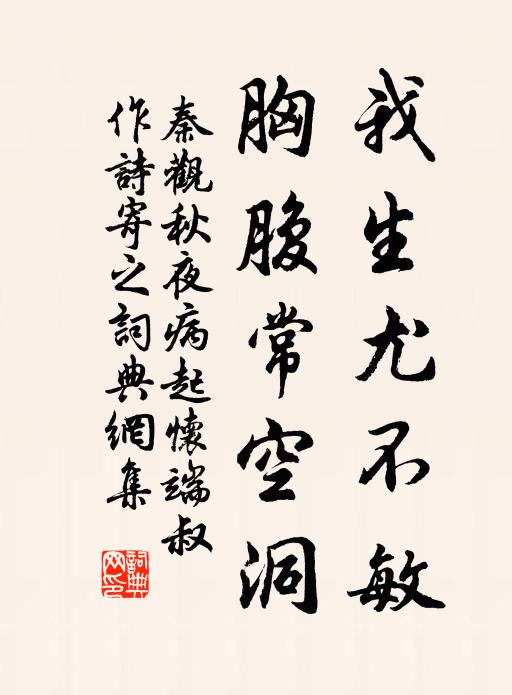 我生尤不敏
胸腹常空洞
秦觀秋夜病起懷端叔
作詩寄之詞典網集
詞典
网印